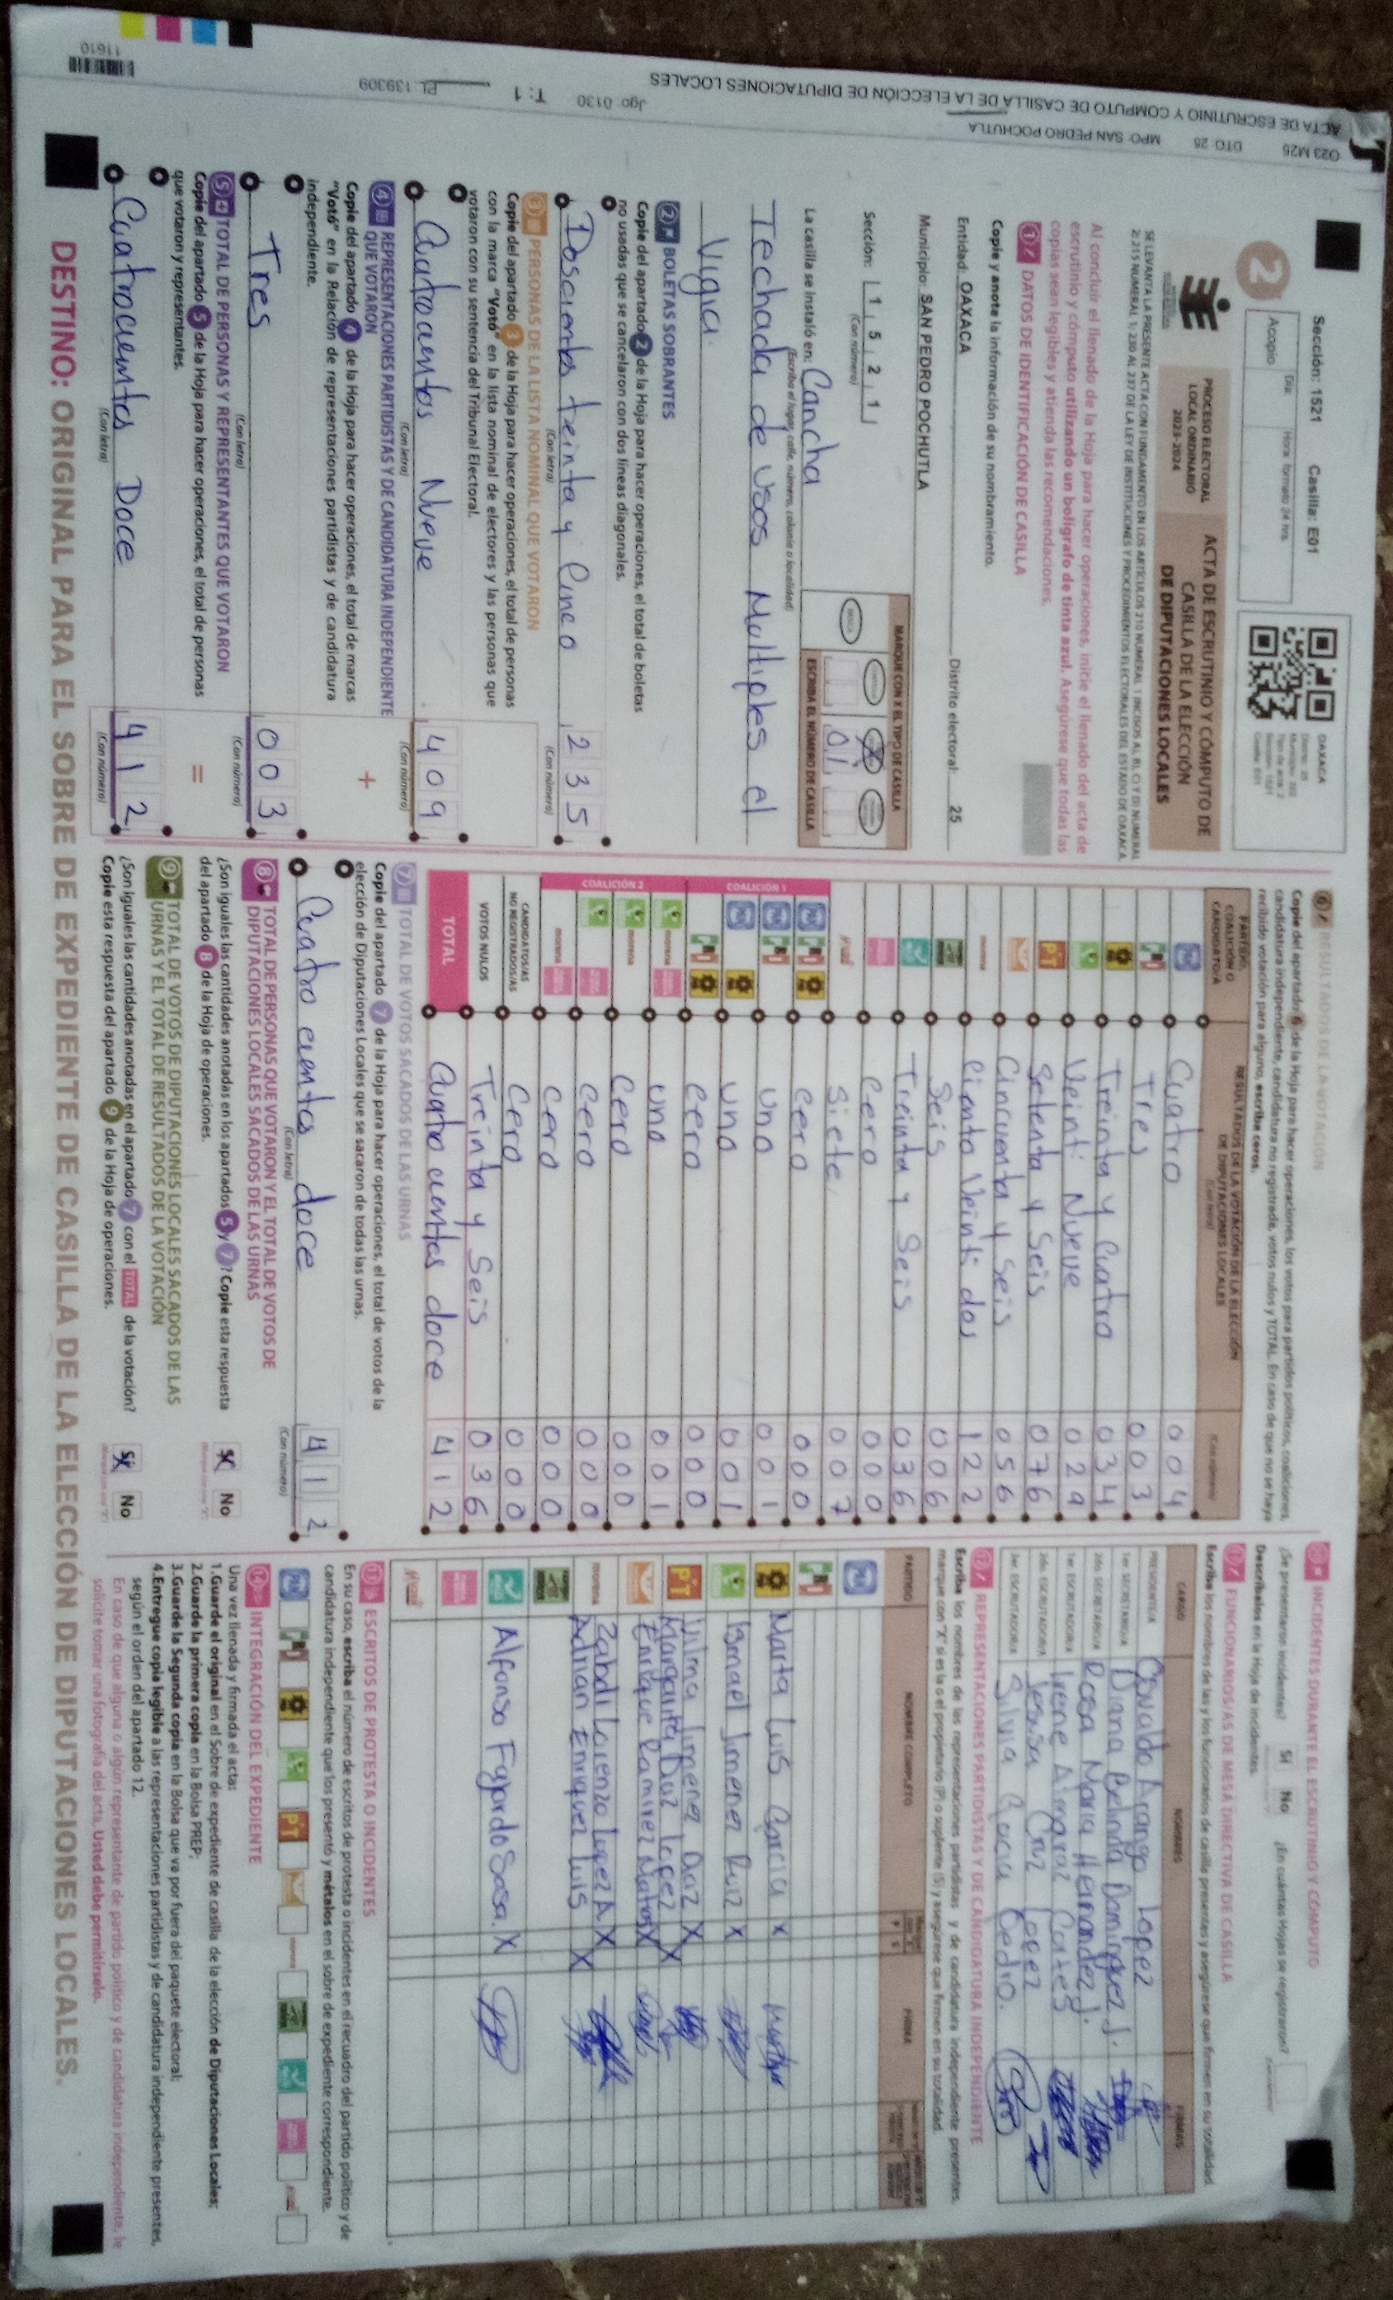 Sección: 1521 Casilla: E01
Día: Hora formato 24 hrs.
Acopio
2
PROCESO ELECTORAL
LOCAL ORDINARIO
2023-2024
ACTA DE ESCRUTINIO Y CÓMPUTO DE
CASILLA DE LA ELECCIÓN
DE DIPUTACIONES LOCALES
OAXACA
Al concluir el llenado de la Hoja para hacer operaciones, inicie el llenado del acta de
escrutinio y cómputo utilizando un bolígrafo de tinta azul. Asegúrese que todas las
copias sean legibles y atienda las recomendaciones.
1 DATOS DE IDENTIFICACIÓN DE CASILLA
Copie y anote la información de su nombramiento.
Entidad: OAXACA Distrito electoral: 25
Municipio: SAN PEDRO POCHUTLA
Sección: 1 5 2 1
(Con número)
MARQUE CON X EL TIPO DE CASILLA
ESCRIBA EL NÚMERO DE CASILLA
01
La casilla se instaló en: Cancha
(Escriba el lugar, calle, número, colonia o localidad)
Techada de usos Multiples el
Vigia.
2 BOLETAS SOBRANTES
Copie del apartado 2 de la Hoja para hacer operaciones, el total de boletas
no usadas que se cancelaron con dos líneas diagonales.
Doscientos treinta y Cinco 235
(Con letra) (Con número)
3 PERSONAS DE LA LISTA NOMINAL QUE VOTARON
Copie del apartado 3 de la Hoja para hacer operaciones, el total de personas
con la marca "Votó" en la lista nominal de electores y las personas que
votaron con su sentencia del Tribunal Electoral.
Cuatrocientos Nueve 409
(Con letra) (Con número)
4 REPRESENTACIONES PARTIDISTAS Y DE CANDIDATURA INDEPENDIENTE
QUE VOTARON
Copie del apartado 4 de la Hoja para hacer operaciones, el total de marcas
"Votó" en la Relación de representaciones partidistas y de candidatura
independiente.
+
Tres 003
(Con letra) (Con número)
5 TOTAL DE PERSONAS Y REPRESENTANTES QUE VOTARON
Copie del apartado 5 de la Hoja para hacer operaciones, el total de personas
que votaron y representantes.
=
Cuatrocientos Doce 412
(Con letra) (Con número)
6 RESULTADOS DE LA VOTACIÓN
Copie del apartado 6 de la Hoja para hacer operaciones, los votos para partidos políticos, coaliciones,
candidatura independiente, candidatura no registrada, votos nulos y TOTAL. En caso de que no se haya
recibido votación para alguno, escriba ceros.
PARTIDO, COALICIÓN O CANDIDATO/A
RESULTADOS DE LA VOTACIÓN DE LA ELECCIÓN
DE DIPUTACIONES LOCALES
Cuatro 004
Tres 003
Treinta y Cuatro 034
Veinti Nueve 029
PT Setenta y Seis 076
Cincuenta y Seis 056
morena Ciento Veinti dos 122
Seis 006
Treinta y Seis 036
Cero 000
Siete 007
COALICIÓN 1
Cero 000
Uno 001
Uno 001
Cero 000
COALICIÓN 2
morena Uno 001
morena Cero 000
Cero 000
morena Cero 000
CANDIDATOS/AS NO REGISTRADOS/AS Cero 000
VOTOS NULOS Treinta y Seis 036
TOTAL Cuatro cientos doce 412
7 TOTAL DE VOTOS SACADOS DE LAS URNAS
Copie del apartado 7 de la Hoja para hacer operaciones, el total de votos de la
elección de Diputaciones Locales que se sacaron de todas las urnas.
Cuatro cientos doce 412
(Con letra) (Con número)
8 TOTAL DE PERSONAS QUE VOTARON Y EL TOTAL DE VOTOS DE
DIPUTACIONES LOCALES SACADOS DE LAS URNAS
¿Son iguales las cantidades anotadas en los apartados 5 y 7? Copie esta respuesta
del apartado 8 de la Hoja de operaciones.
Sí No
9 TOTAL DE VOTOS DE DIPUTACIONES LOCALES SACADOS DE LAS
URNAS Y EL TOTAL DE RESULTADOS DE LA VOTACIÓN
¿Son iguales las cantidades anotadas en el apartado 7 con el TOTAL de la votación?
Copie esta respuesta del apartado 9 de la Hoja de operaciones.
Sí No
INCIDENTES DURANTE EL ESCRUTINIO Y CÓMPUTO
¿Se presentaron incidentes? Sí No ¿En cuántas Hojas se registraron?
Descríbalos en la Hoja de incidentes.
FUNCIONARIOS/AS DE MESA DIRECTIVA DE CASILLA
Escriba los nombres de las y los funcionarios de casilla presentes y asegúrese que firmen en su totalidad.
CARGO NOMBRES FIRMAS
PRESIDENTE/A Osvaldo Arango Lopez
1er. SECRETARIO/A Diana Belinda Dominguez J.
2do. SECRETARIO/A Rosa Maria Hernandez J.
1er. ESCRUTADOR/A Irene
2do. ESCRUTADOR/A Cruz Lopez
3er. ESCRUTADOR/A Silvia
12 REPRESENTACIONES PARTIDISTAS Y DE CANDIDATURA INDEPENDIENTE
Escriba los nombres de las representaciones partidistas y de candidatura independiente presentes,
marque con "X" si es la o el propietario (P) o suplente (S) y asegúrese que firmen en su totalidad.
PARTIDO NOMBRE COMPLETO FIRMA
Marta Luis Garcia X
Ismael Jimenez Ruiz X
PT Vilma Jimenez Diaz X
Margarita Diaz Lopez X
Enrique Ramirez Matos X
morena Zabdi Lorenzo Lopez A X
Adrian Enriquez Luis X
Alfonso Fajardo Sosa. X
13 ESCRITOS DE PROTESTA O INCIDENTES
En su caso, escriba el número de escritos de protesta o incidentes en el recuadro del partido político y de
candidatura independiente que los presentó y métalos en el sobre de expediente correspondiente.
14 INTEGRACIÓN DEL EXPEDIENTE
Una vez llenada y firmada el acta:
1.Guarde el original en el Sobre de expediente de casilla de la elección de Diputaciones Locales;
2.Guarde la primera copia en la Bolsa PREP;
3.Guarde la Segunda copia en la Bolsa que va por fuera del paquete electoral;
4.Entregue copia legible a las representaciones partidistas y de candidatura independiente presentes,
según el orden del apartado 12.
En caso de que alguna o algún representante de partido político y de candidatura independiente, le
solicite tomar una fotografía del acta, Usted debe permitírselo.
DESTINO: ORIGINAL PARA EL SOBRE DE EXPEDIENTE DE CASILLA DE LA ELECCIÓN DE DIPUTACIONES LOCALES.
023 M25 DTO: 25 MPO: SAN PEDRO POCHUTLA
ACTA DE ESCRUTINIO Y COMPUTO DE CASILLA DE LA ELECCIÓN DE DIPUTACIONES LOCALES
Jgo: 0130 T: 1 PL: 139309
11610